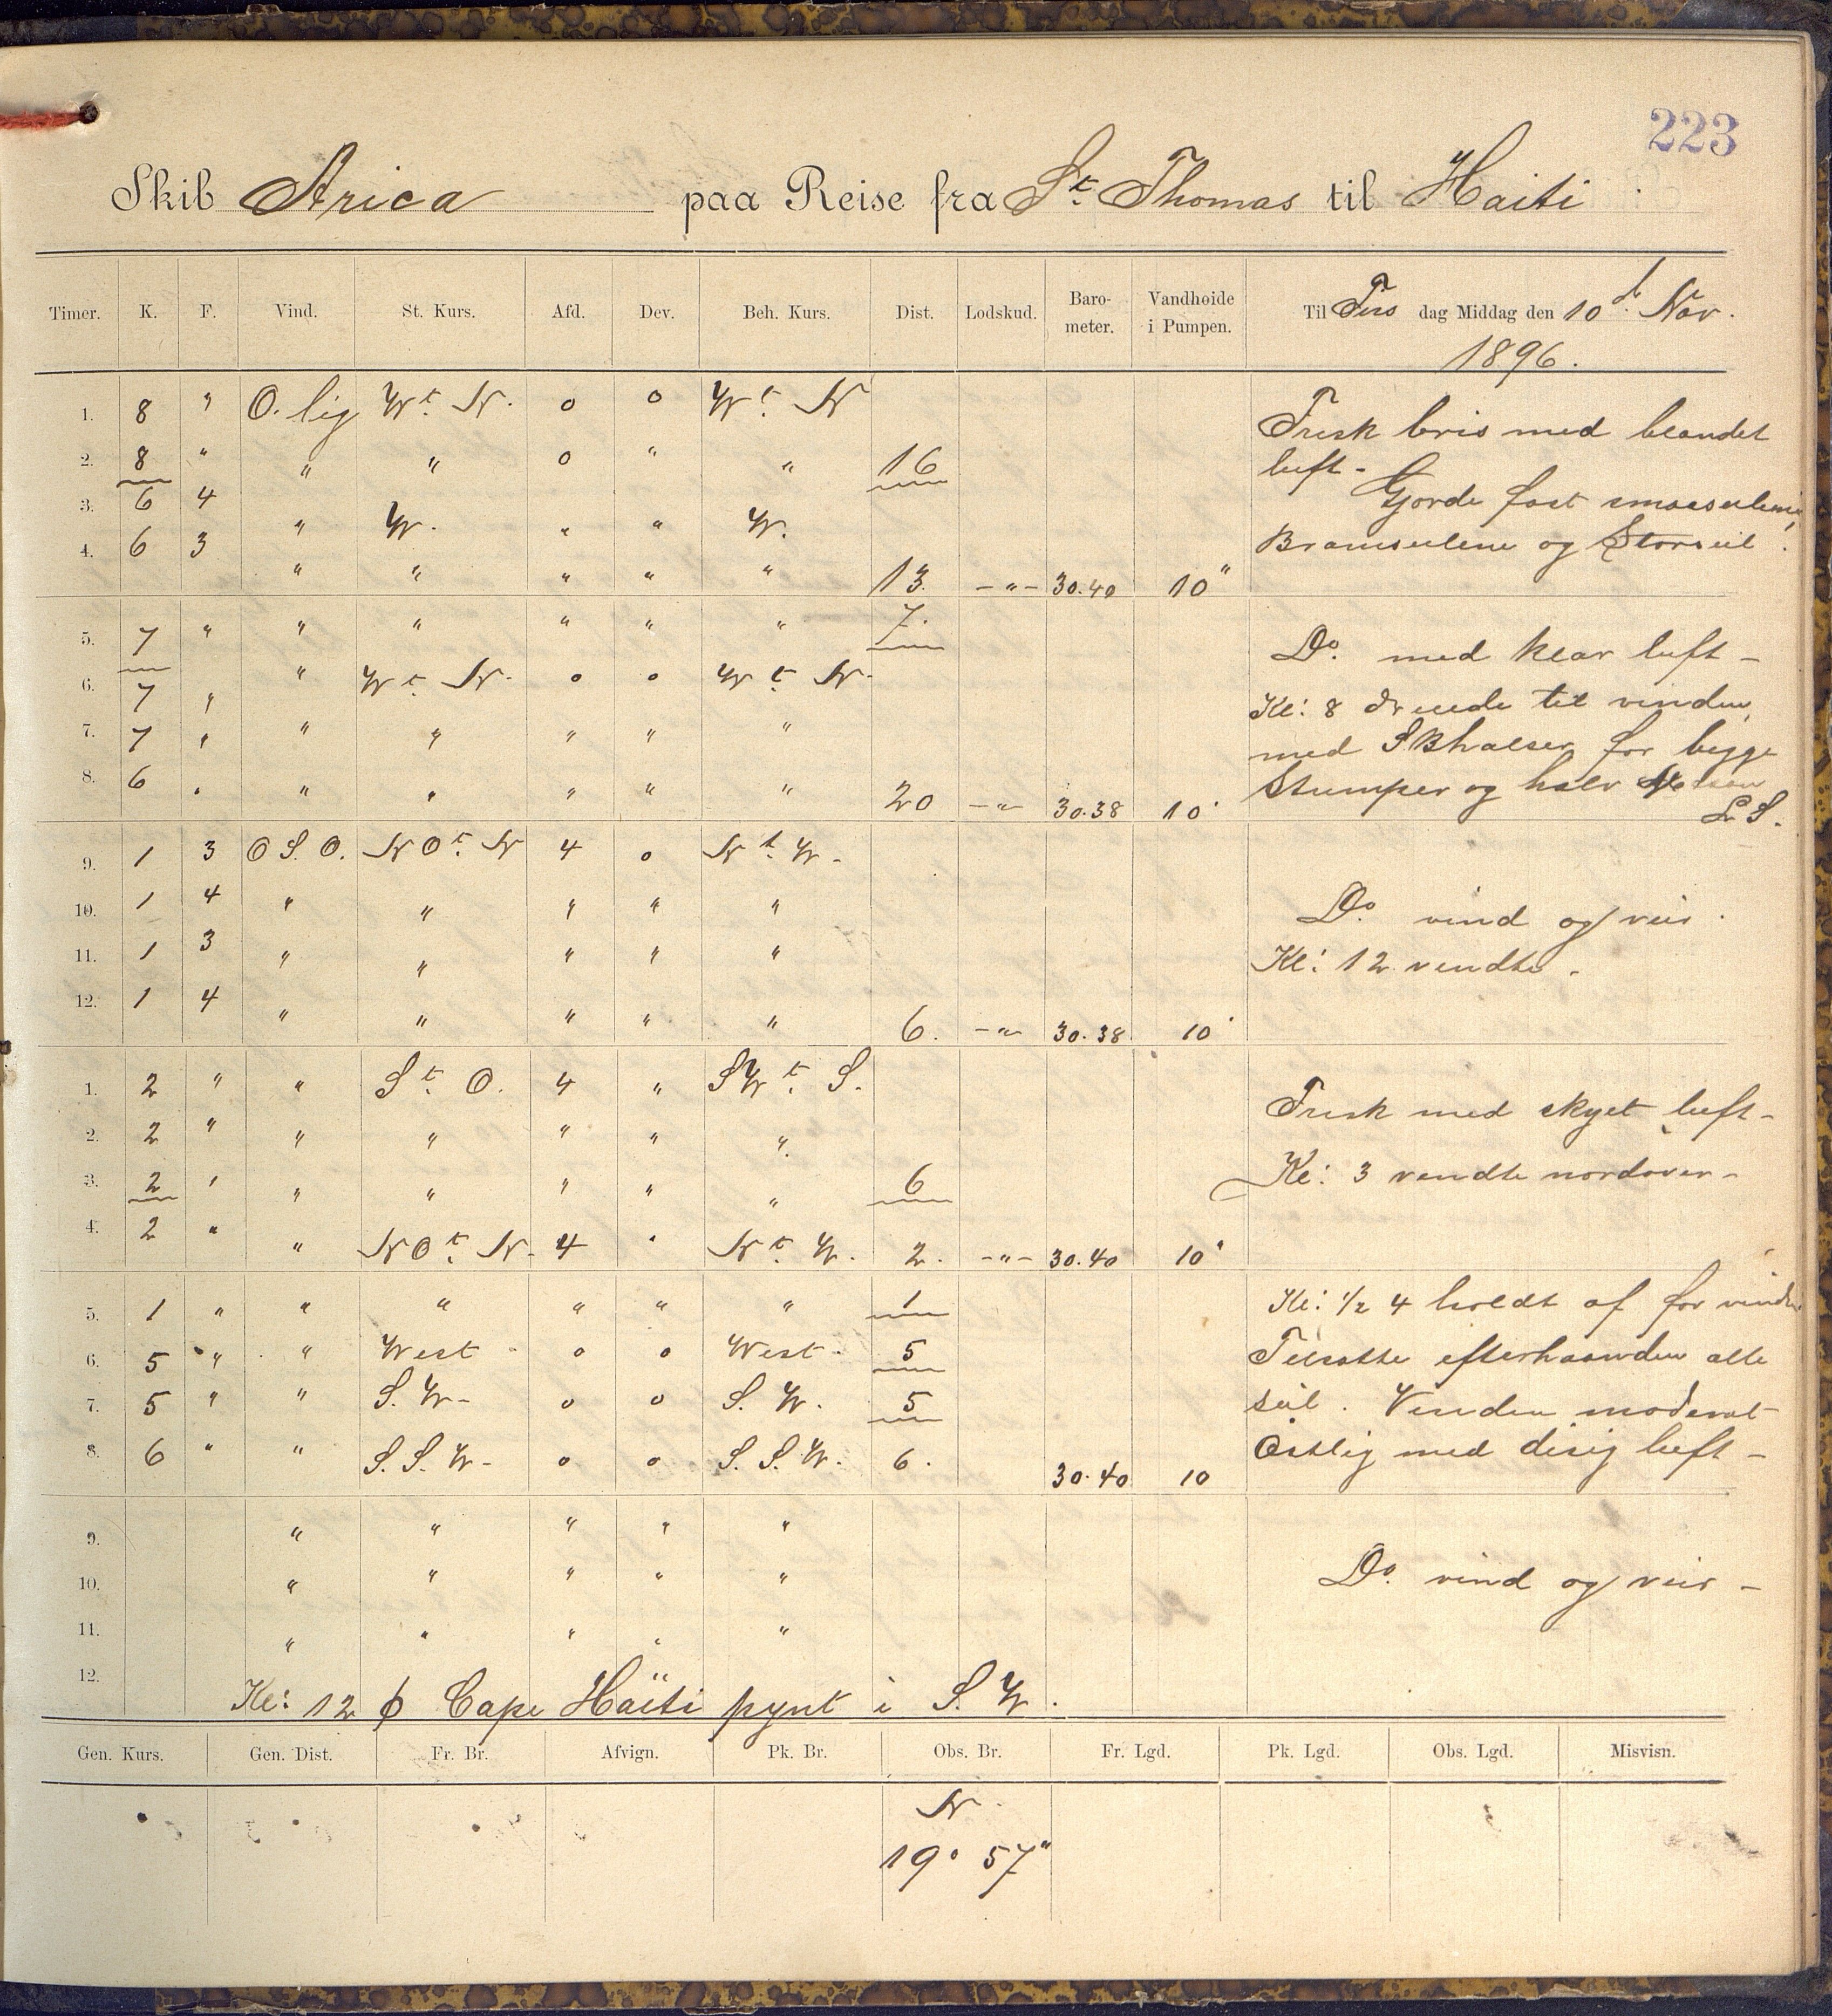 223
Skib Arica paa Reise fra St. Thomas til Haiti
Timer. K. F. Vind. St. Kurs. Afd. Dev. Beh. Kurs. Dist. Lodskud. Baro-meter. Vandhøide i Pumpen. Til Tirs dag Middag den 10d. Nov.
1896.
1. 8 " O. lig Wt. N. 0 0 Wt. N
Frisk bris med blandet
2. 8 " " " 0 " " 16
luft -
3. 6 4 " W. " " W.
Gjorde fast smaaseilene,
4. 6 3 " " " " " 13. -"- 30.40 10"
Bramseilene og Storseil.
5. 7 " " " " " " 7.
Do. med klar luft -
6. 7 " " Wt. N. 0 0 Wt. N.
Kl: 8 dreiede til vinden,
7. 7 " " " " " "
med SBhalser for begge
8. 6 " " " " " " 20 -"- 30.38 10"
Stumper og halv
L S.
9. 1 3 O S. O. N Ot. N 4 0 Nt. W.
10. 1 4 " " " " "
Do. vind og veir.
11. 1 3 " " " " "
Kl: 12 vendte.
12. 1 4 " " " " " 6. -"- 30.38 10"
1. 2 " " St. O. 4 " SWt. S.
Frisk med skyet luft -
2. 2 " " " " " "
3. 2 " " " " " " 6
Kl: 3 vendte nordover -
4. 2 " " N Ot. N. 4 " Nt. W. 2. -"- 30.40 10"
5. 1 " " " " " " 1
Kl: 1/2 4 holdt af for vinden
6. 5 " " West 0 0 West. 5
Tilsatte efterhaanden alle
7. 5 " " S. W- 0 0 S. W. 5
seil. Vinden moderat
8. 6 " " S. S. W- 0 0 S. S. W. 6. 30.40 10
Östlig med disig luft -
9. " " " " "
10. " " " " "
Do. vind og veir -
11. " " " " "
12.
Kl: 12 ϕ Cape Haïti pynt i S. W.
Gen. Kurs. Gen. Dist. Fr. Br. Afvign. Pk. Br. Obs. Br. Fr. Lgd. Pk. Lgd. Obs. Lgd. Misvisn.
N.
19° 57"